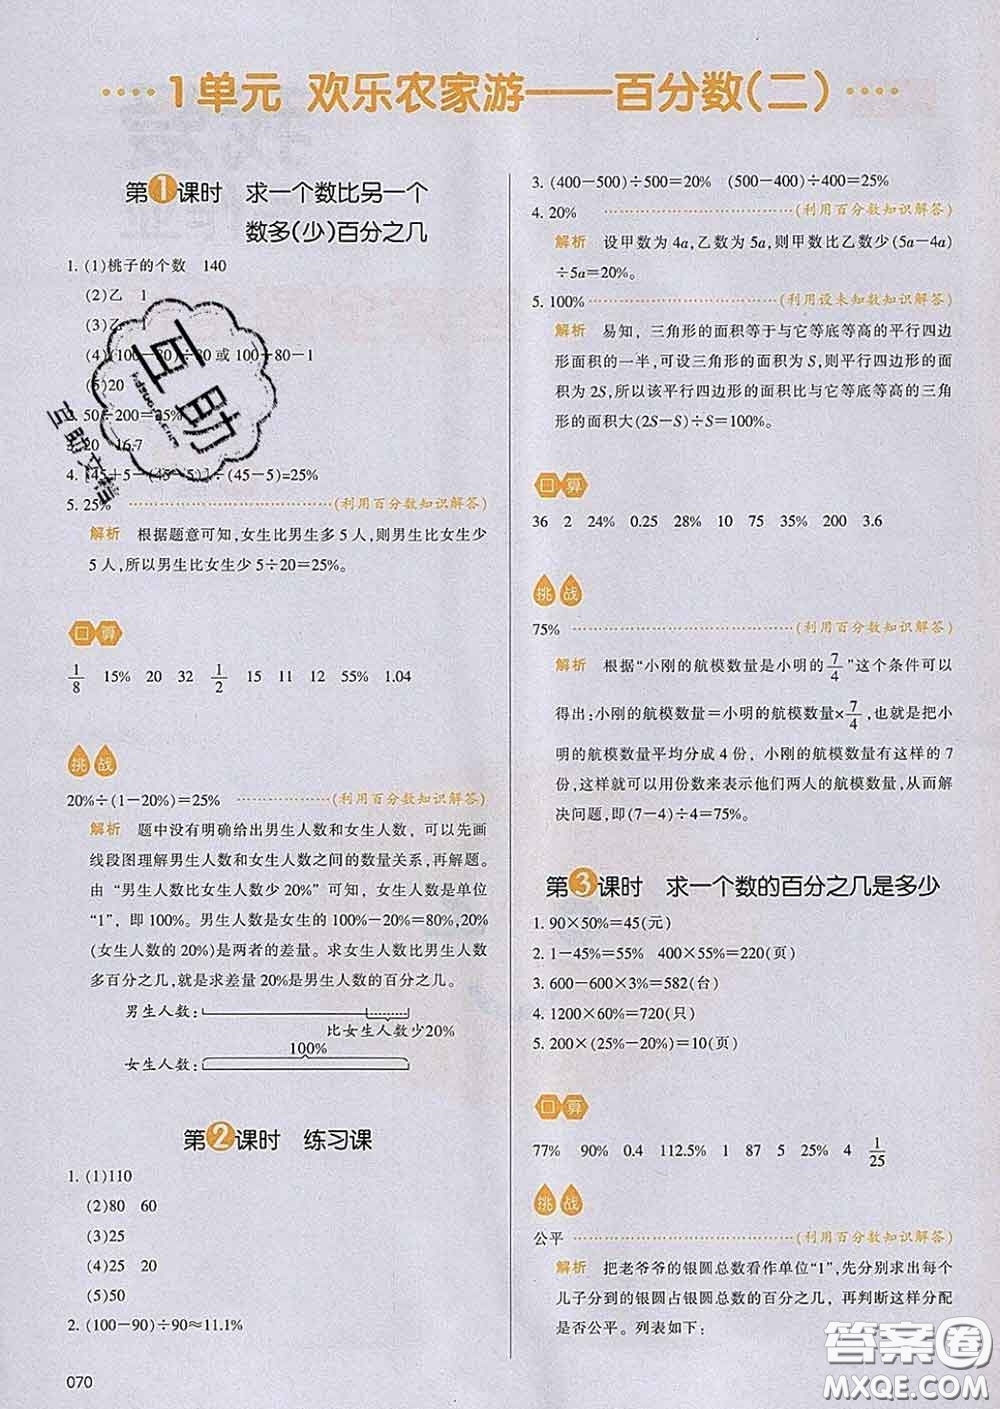 1单元 欢乐农家游——百分数(二)
第1课时 求一个数比另一个
数多(少)百分之几
1. (1)桃子的个数 140
(2)乙 1
(3)乙
(4)(100-80)÷80或100÷80-1
(5)20
2. 50÷200=25%
3. 20 16.7
4. [45+5-(45-5)]÷(45-5)=25%
5. 25% (利用百分数知识解答)
解析 根据题意可知,女生比男生多5人,则男生比女生少
5人,所以男生比女生少5÷20=25%。
口算
1/8 15% 20 32 1/2 15 11 12 55% 1.04
挑战
20%÷(1-20%)=25% (利用百分数知识解答)
解析 题中没有明确给出男生人数和女生人数，可以先画
线段图理解男生人数和女生人数之间的数量关系,再解题。
由“男生人数比女生人数少20%”可知，女生人数是单位
“1”，即100%。男生人数是女生的100%-20%=80%,20%
(女生人数的20%)是两者的差量。求女生人数比男生人数
多百分之几,就是求差量20%是男生人数的百分之几。
男生人数:
比女生人数少20%
100%
女生人数:
第2课时 练习课
1. (1)110
(2)80 60
(3)25
(4)25 20
(5)50
2. (100-90)÷90≈11.1%
070
3. (400-500)÷500=20% (500-400)÷400=25%
4. 20% (利用百分数知识解答)
解析 设甲数为4a,乙数为5a,则甲数比乙数少(5a-4a)
÷5a=20%。
5. 100% (利用设未知数知识解答)
解析 易知，三角形的面积等于与它等底等高的平行四边
形面积的一半,可设三角形的面积为S,则平行四边形的面
积为2S,所以该平行四边形的面积比与它等底等高的三角
形的面积大(2S-S)÷S=100%。
口算
36 2 24% 0.25 28% 10 75 35% 200 3.6
挑战
75% (利用百分数知识解答)
解析 根据“小刚的航模数量是小明的7/4”这个条件可以
得出:小刚的航模数量=小明的航模数量×7/4,也就是把小
明的航模数量平均分成4份，小刚的航模数量有这样的7
份,这样就可以用份数来表示他们两人的航模数量,从而解
决问题,即(7-4)÷4=75%。
第3课时 求一个数的百分之几是多少
1. 90×50%=45(元)
2. 1-45%=55% 400×55%=220(页)
3. 600-600×3%=582(台)
4. 1200×60%=720(只)
5. 200×(25%-20%)=10(页)
口算
77% 90% 0.4 112.5% 17 50 5 25% 4 1/25
挑战
公平 (利用百分数知识解答)
解析 把老爷爷的银圆总数看作单位“1”,先分别求出每个
儿子分到的银圆占银圆总数的百分之几，再判断这样分配
是否公平。列表如下:
互助
互助文档
答案圈
MXQE.COM